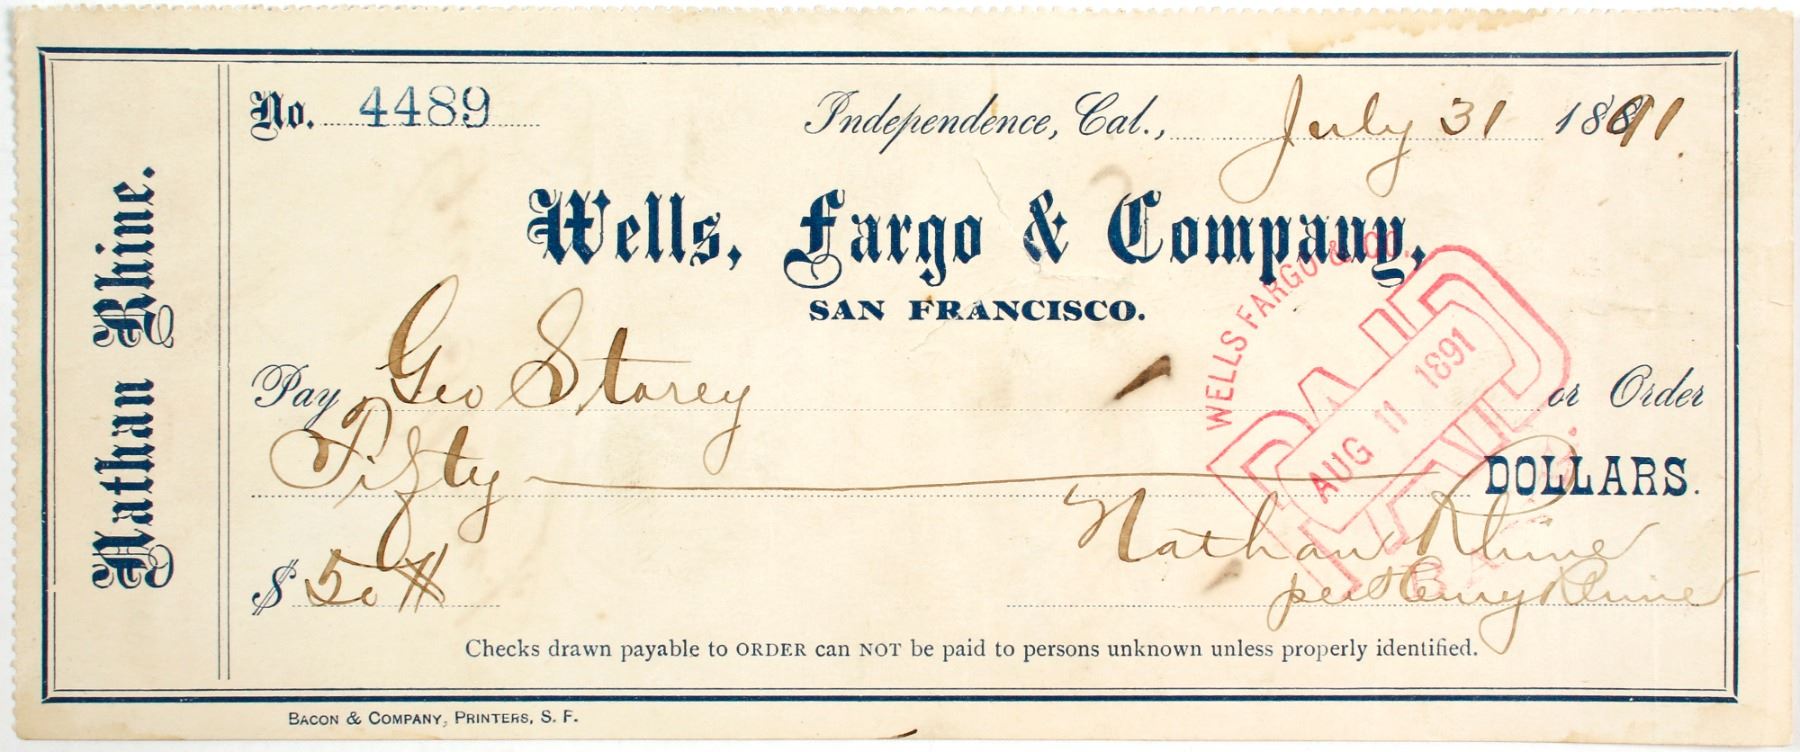 Nathan Rhine.
No. 4489
Independence, Cal., July 31 1891.
Wells, Fargo & Company,
SAN FRANCISCO.
Pay Geo Storey or Order
Fifty DOLLARS.
WELLS FARGO & CO.
PAID
AUG 11 1891
BANK
Nathan Rhine
per Henry Rhine
$ 50
Checks drawn payable to ORDER can NOT be paid to persons unknown unless properly identified.
BACON & COMPANY, PRINTERS, S. F.